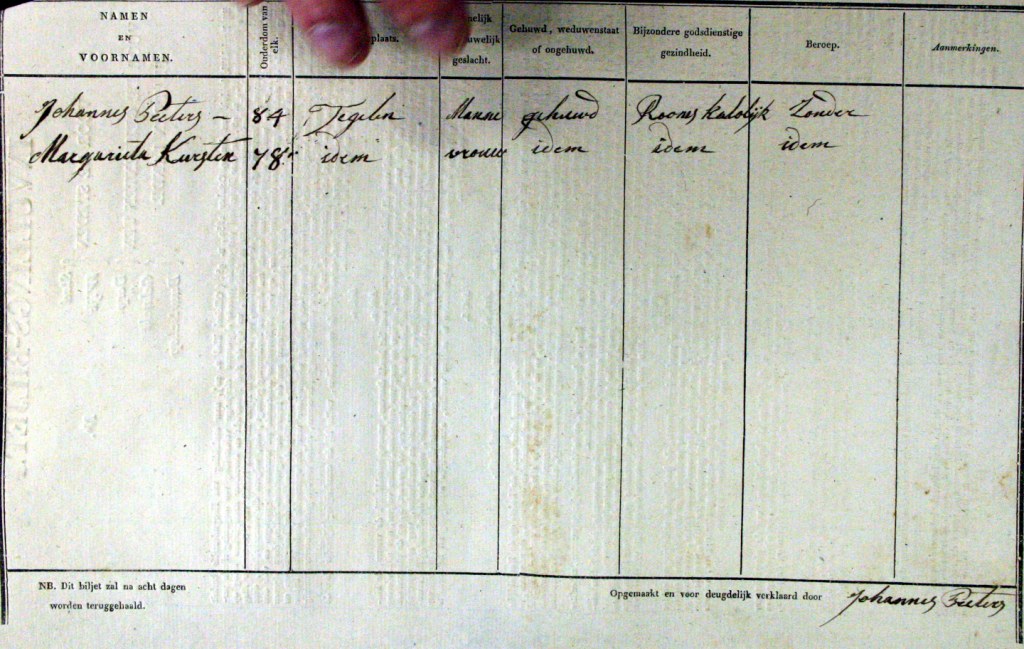 NAMEN
EN
VOORNAMEN.
Ouderdom van
elk.
plaats.
nelijk
uwelijk
geslacht.
Gehuwd, weduwenstaat
of ongehuwd.
Bijzondere godsdienstige
gezindheid.
Beroep.
Aanmerkingen.
Johannes Peeters — 84 Tegelen Manne gehuwd Rooms katolijk Zonder
Margarieta Kursten 78 idem vrouw idem idem idem
NB. Dit biljet zal na acht dagen
worden teruggehaald.
Opgemaakt en voor deugdelijk verklaard door Johannes Peeters